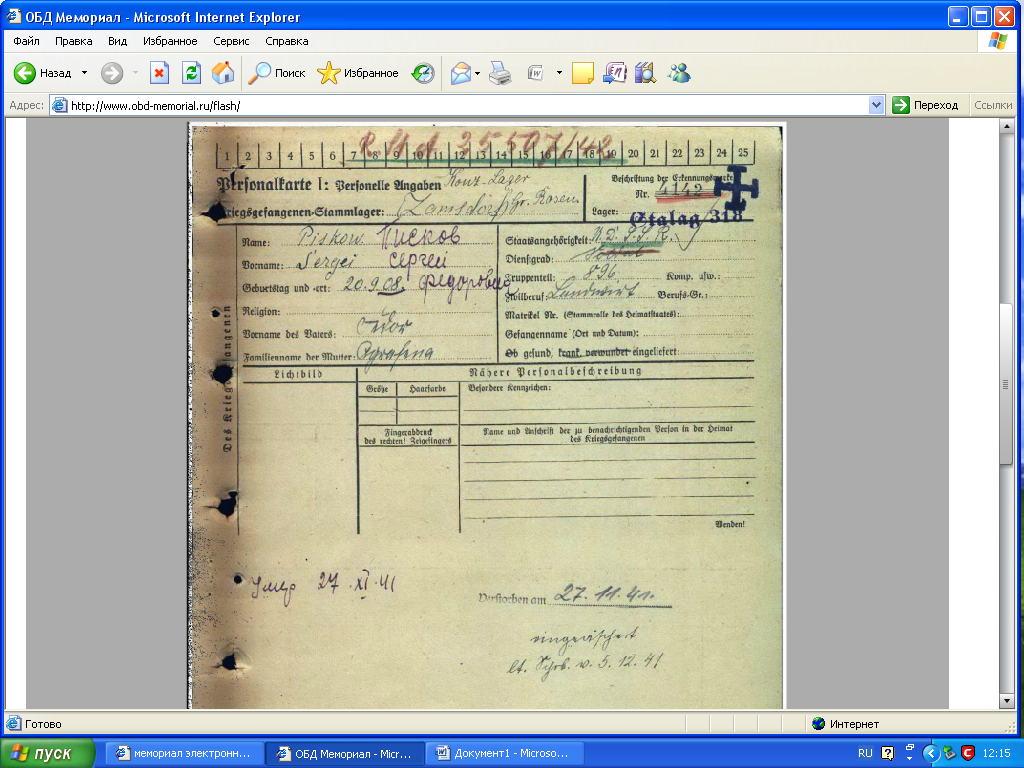 ОБД Мемориал - Microsoft Internet Explorer
Файл Правка Вид Избранное Сервис Справка
Назад Поиск Избранное
Адрес: http://www.obd-memorial.ru/flash/ Переход Ссылки
35507/42
1 2 3 4 5 6 7 8 9 10 11 12 13 14 15 16 17 18 19 20 21 22 23 24 25
Personalkarte I: Personelle Angaben Konz-Lager
Beschriftung der Erkennungsmarke
Nr. 4142
Kriegsgefangenen-Stammlager: (Lamsdorf) Gr. Rosen
Lager: Stalag 318
Des Kriegsgefangenen
Name: Piskow Писков
Vorname: Sergei Сергей
Geburtstag und -ort: 20.9.08. Федорович
Religion:
Vorname des Vaters: Fedor
Familienname der Mutter: Agrafena
Staatsangehörigkeit: U.d.S.S.R.
Dienstgrad: Soldat
Truppenteil: 896 Komp. usw.:
Zivilberuf: Landwirt Berufs-Gr.:
Matrikel Nr. (Stammrolle des Heimatstaates):
Gefangenname (Ort und Datum):
Ob gesund, krank, verwundet eingeliefert:
Lichtbild
Nähere Personalbeschreibung
Größe Haarfarbe Besondere Kennzeichen:
Fingerabdruck
des rechten! Zeigefingers
Name und Anschrift der zu benachrichtigenden Person in der Heimat
des Kriegsgefangenen
Wenden!
Умер 27.XI.41
Verstorben am 27.11.41.
eingeäschert
lt. Schrb. v. 5.12.41
Готово Интернет
пуск мемориал электронн... ОБД Мемориал - Micr... Документ1 - Microso... RU 12:15